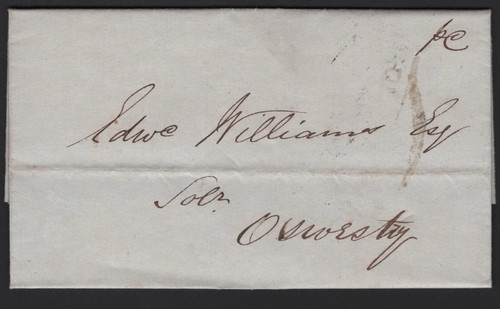 pc
Edwd Williams Esq
Solr
Oswestry